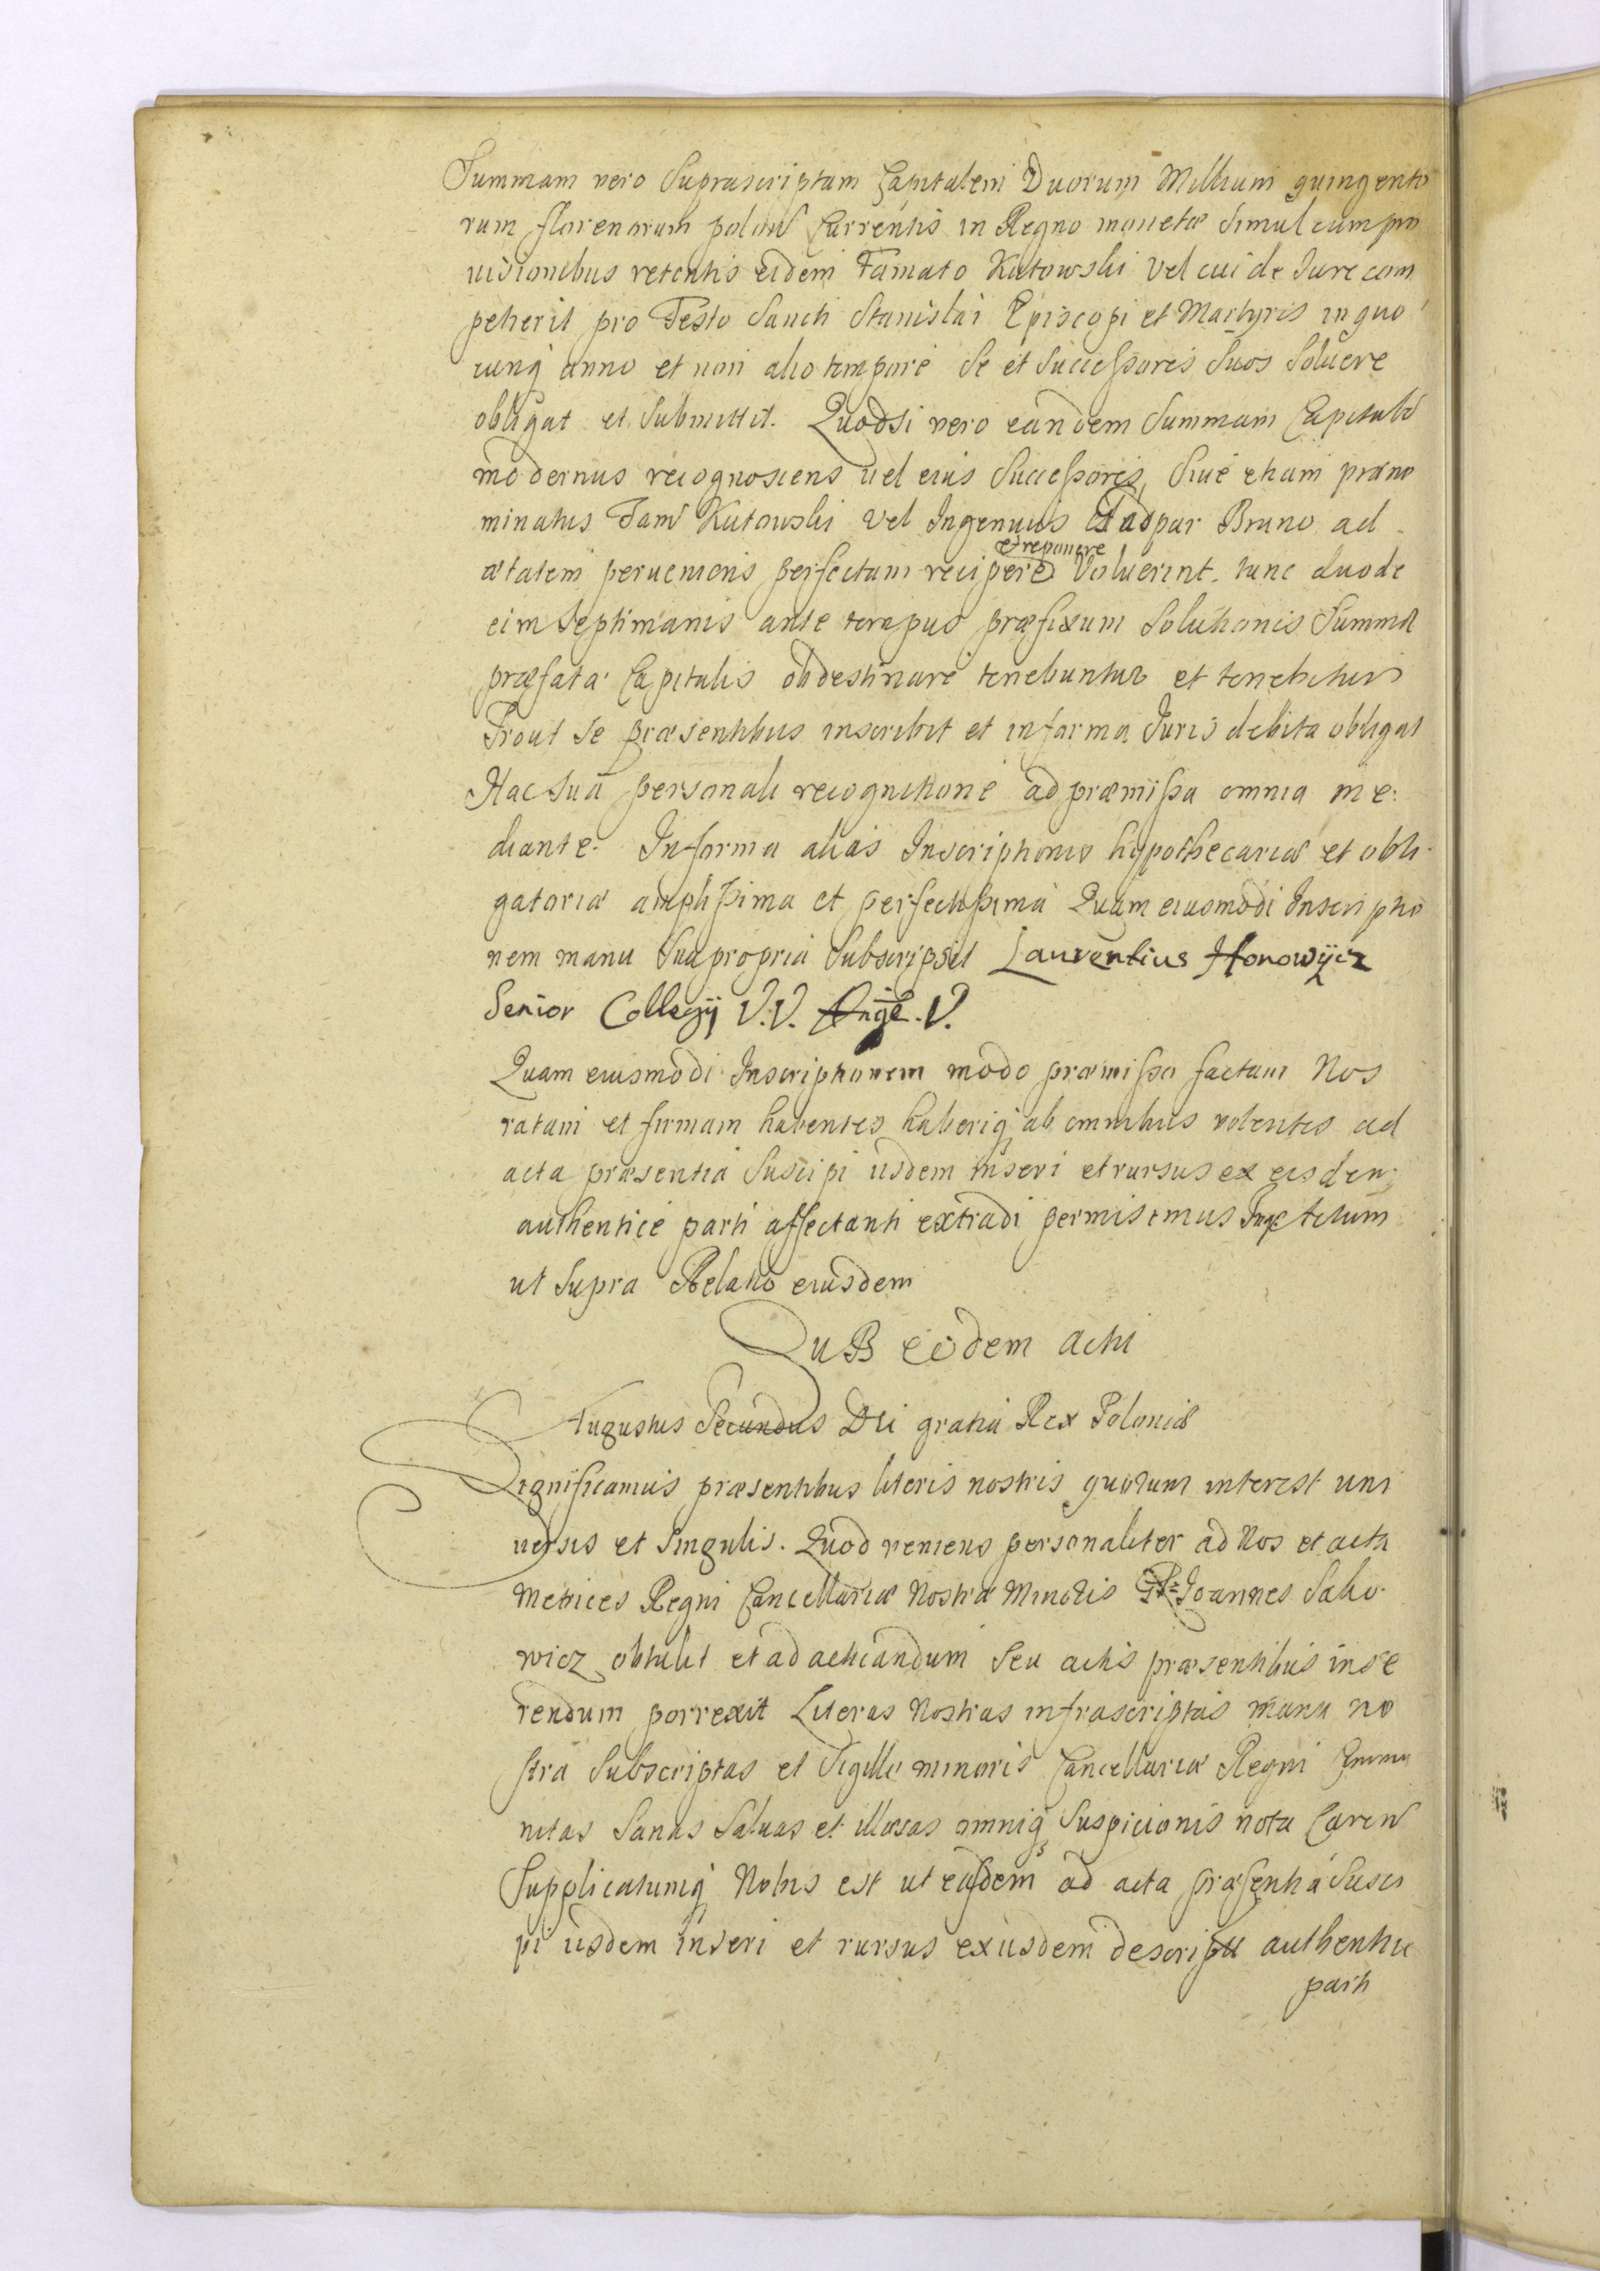 Summam vero Suprascriptam Capitalem Duorum Millium quingento
rum florenorum polon Currentis in Regno monetæ Simul cum pro
uisionibus retentis eidem Famato Kutowski Vel cui de Iure com
petierit pro Festo Sancti Stanislai Episcopi et Martyris in quo
cunq anno et non alio tempore Se et Successores Suos Soluere
obligat et Submittit. Quodsi vero eandem Summam Capitalē
modernus recognoscens uel eius Successores, Siue etiam præno
minatus Fam Kutowski vel Ingenuus Gaspar Bruno ad
ætatem perueniens perfectam recipere et reponere Voluerint. tunc duode
cim Septimanis ante tempus præfixum Solutionis Summæ
præfatæ Capitalis obdestinare tenebuntur et tenebitur
Prout Se præsentibus inscribit et in forma Iuris debita obligat
Hac Sua personali recognitione ad præmissa omnia me:
diante. In forma alias Inscriptionis hypothecariæ et obli-
gatoriæ amplissima et perfectissima Quam eiusmodi Inscriptio
nem manu Sua propria Subscripsit Laurentius Honowijcz
Senior Collegij V.V. V.
Quam eiusmodi Inscriptionem modo præmisso factam Nos
ratam et firmam habentes haberiq ab omnibus volentes ad
acta præsentia Suscipi iisdem inseri et rursus ex eisdem
authentice parti affectanti extradi permisimus Actum
ut Supra Relatio eiusdem
SuB eodem Actu
Augustus Secundus Dei gratia Rex Poloniæ
Significamus præsentibus literis nostris quorum interest uni
uersis et Singulis. Quod veniens personaliter ad Nos et acta
Metrices Regni Cancellariæ Nostræ Minoris Joannes Saho
wicz obtulit et ad acticandum Seu actis præsentibus inse
rendum porrexit Literas Nostras infrascriptas manu no
stra Subscriptas et Sigillo minoris Cancellariæ Regni Commu
nitas Sanas Saluas et illæsas omniq Suspicionis nota Caren
Supplicatumq Nobis est ut easdem ad acta præsentia Susci
pi iisdem inseri et rursus ex iisdem descripti authentice
parti